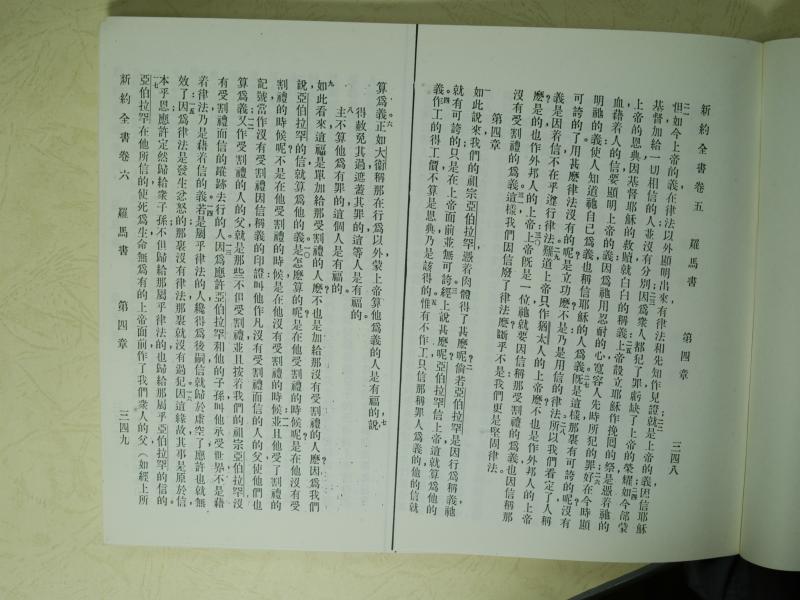 新約全書卷五　羅馬書　第四章　三四八
但如今上帝的義在律法以外顯明出來有律法和先知作見證就是上帝的義因信耶穌
基督加給一切相信的人並沒有分別因爲衆人都犯了罪虧缺了上帝的榮耀如今卻蒙
上帝的恩典因基督耶穌的救贖就白白的稱義上帝設立耶穌作挽囘的祭是憑着祂的
血藉着人的信要顯明上帝的義因爲祂用忍耐的心寬容人先時所犯的罪好在今時顯
明祂的義使人知道祂自己爲義也稱信耶穌的人爲義旣是這樣那裏有可誇的呢沒有
可誇的了用甚麽律法沒有的呢是立功麽不是乃是用信的律法所以我們看定了人稱
義是因着信不在乎遵行律法難道上帝只作猶太人的上帝麽不也是作外邦人的上帝
麽是的也作外邦人的上帝上帝旣是一位祂就要因信稱那受割禮的爲義也因信稱那
沒有受割禮的爲義這樣我們因信廢了律法麽斷乎不是我們更是堅固律法
第四章
如此說來我們的祖宗亞伯拉罕憑着肉體得了甚麽呢倘若亞伯拉罕是因行爲稱義祂
就有可誇的只是在上帝面前並無可誇經上說甚麽呢亞伯拉罕信上帝這就算爲他的
義作工的得工價不算是恩典乃是該得的惟有不作工只信那稱罪人爲義的他的信就
算爲義正如大衞稱那在行爲以外蒙上帝算他爲義的人是有福的說
得赦免其過遮蓋其罪的這等人是有福的
主不算他爲有罪的這個人是有福的
如此看來這福是單加給那受割禮的人麽不也是加給那沒有受割禮的人麽因爲我們
說亞伯拉罕的信就算爲他的義是怎麽算的呢是在他受割禮的時候呢是在他沒有受
割禮的時候呢不是在他受割禮的時候是在他沒有受割禮的時候並且他受了割禮的
記號當作沒有受割禮因信稱義的印證叫他作凡沒有受割禮而信的人的父使他們也
算爲義又作受割禮的人的父就是那些不但受割禮並且按着我們的祖宗亞伯拉罕沒
有受割禮而信的蹤跡去行的人因爲應許亞伯拉罕和他的子孫叫他承受世界不是藉
着律法乃是藉着信的義若是屬乎律法的人纔得爲後嗣信就歸於虛空了應許也就無
效了因爲律法是發生忿怒的那裏沒有律法那裏就沒有過犯因這緣故其事是原於信
本乎恩應許定然歸給衆子孫不但歸給那屬乎律法的也歸給那屬乎亞伯拉罕的信的
亞伯拉罕在他所信的使死爲生命無爲有的上帝面前作了我們衆人的父（如經上所
新約全書卷六　羅馬書　第四章　三四九